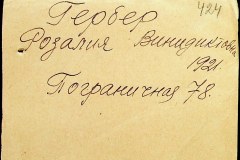 424
Гербер
Розалия Винидиктовна
1921.
Пограничная 78.